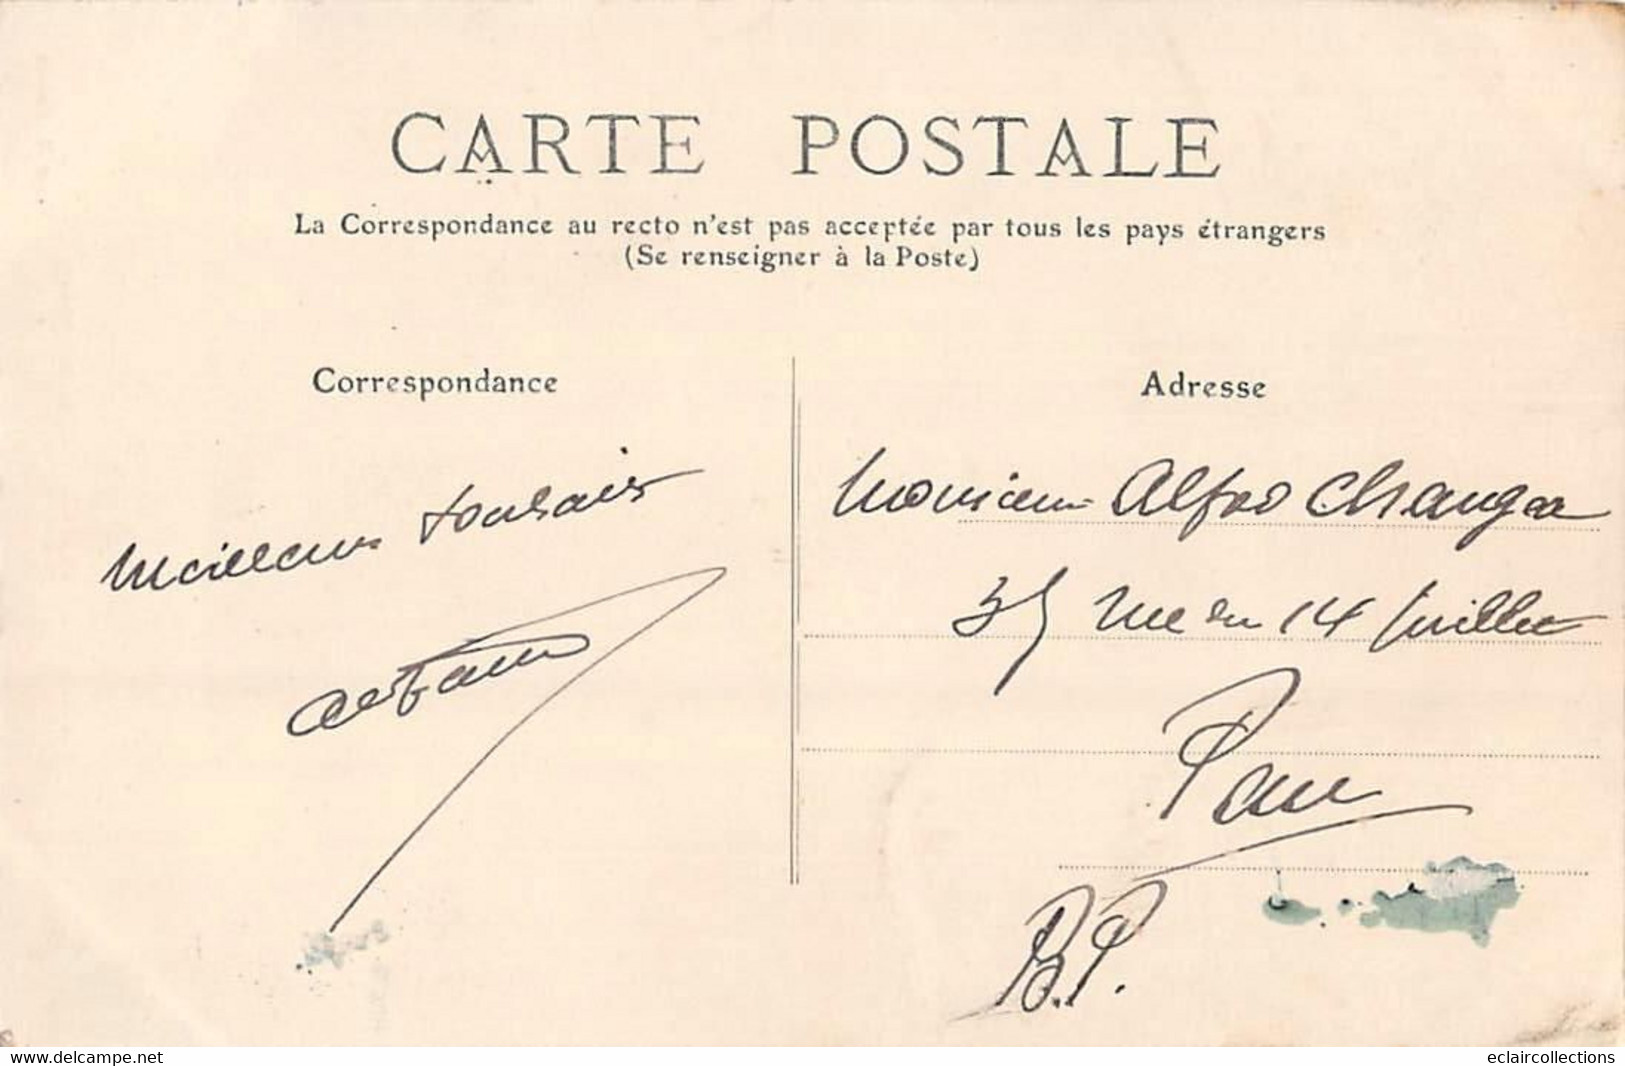 CARTE POSTALE
La Correspondance au recto n'est pas acceptée par tous les pays étrangers
(Se renseigner à la Poste)
Correspondance
Adresse
Meilleurs souhaits
Monsieur Alfred
35 rue du 14 Juillet
Pau
B.P.
www.delcampe.net
eclaircollections